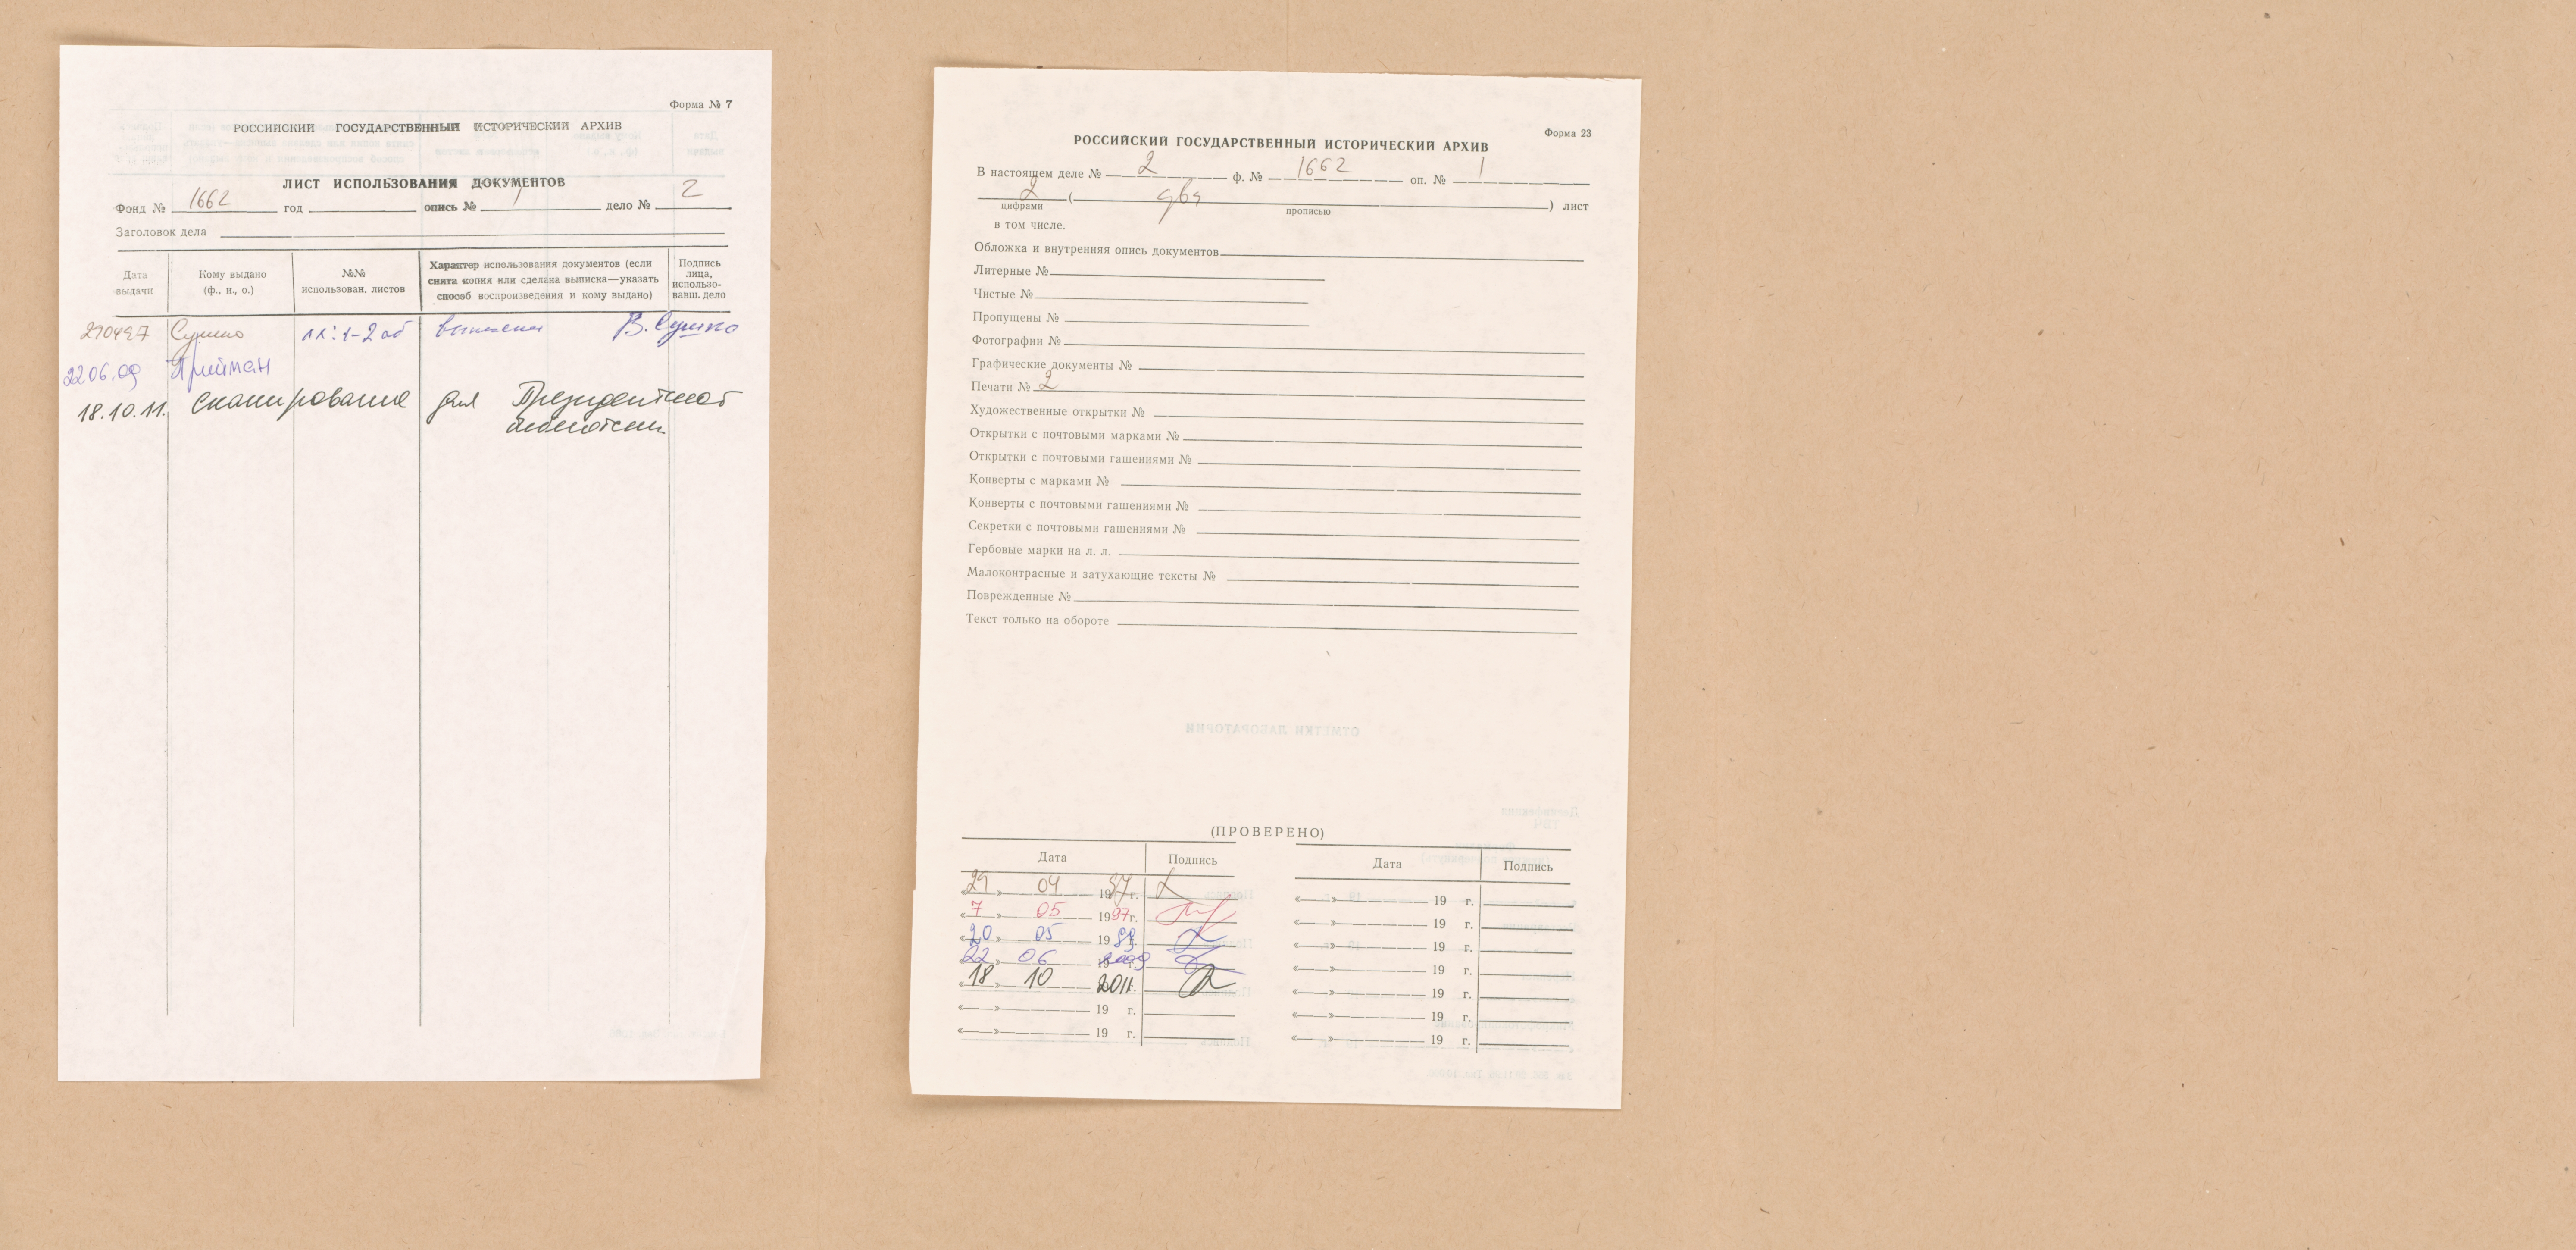 Форма № 7
РОССИЙСКИЙ ГОСУДАРСТВЕННЫЙ ИСТОРИЧЕСКИЙ АРХИВ
ЛИСТ ИСПОЛЬЗОВАНИЯ ДОКУМЕНТОВ
Фонд № 1662 год опись № 1 дело № 2
Заголовок дела
Дата выдачи
Кому выдано (ф., и., о.)
№№ использован. листов
Характер использования документов (если снята копия или сделана выписка—указать способ воспроизведения и кому выдано)
Подпись лица, использовавш. дело
290497 Сушко лл: 1-2 об выписки В. Сушко
22 06.09 Прийман
18.10.11. Сканирование для Президентской
библиотеки
Форма 23
РОССИЙСКИЙ ГОСУДАРСТВЕННЫЙ ИСТОРИЧЕСКИЙ АРХИВ
В настоящем деле № 2 ф. № 1662 оп. № 1
2 ( два ) лист
цифрами прописью
в том числе.
Обложка и внутренняя опись документов
Литерные №
Чистые №
Пропущены №
Фотографии №
Графические документы №
Печати № 2
Художественные открытки №
Открытки с почтовыми марками №
Открытки с почтовыми гашениями №
Конверты с марками №
Конверты с почтовыми гашениями №
Секретки с почтовыми гашениями №
Гербовые марки на л. л.
Малоконтрасные и затухающие тексты №
Поврежденные №
Текст только на обороте
ОТМЕТКИ ЛАБОРАТОРИИ
(ПРОВЕРЕНО)
Дата Подпись Дата Подпись
«29» 04 1997 г. «» 19 г.
«7» 05 1997 г. «» 19 г.
«20» 05 19 г. «» 19 г.
«22» 06 2009 «» 19 г.
«18» 10 2011 г. «» 19 г.
«» 19 г. «» 19 г.
«» 19 г. «» 19 г.